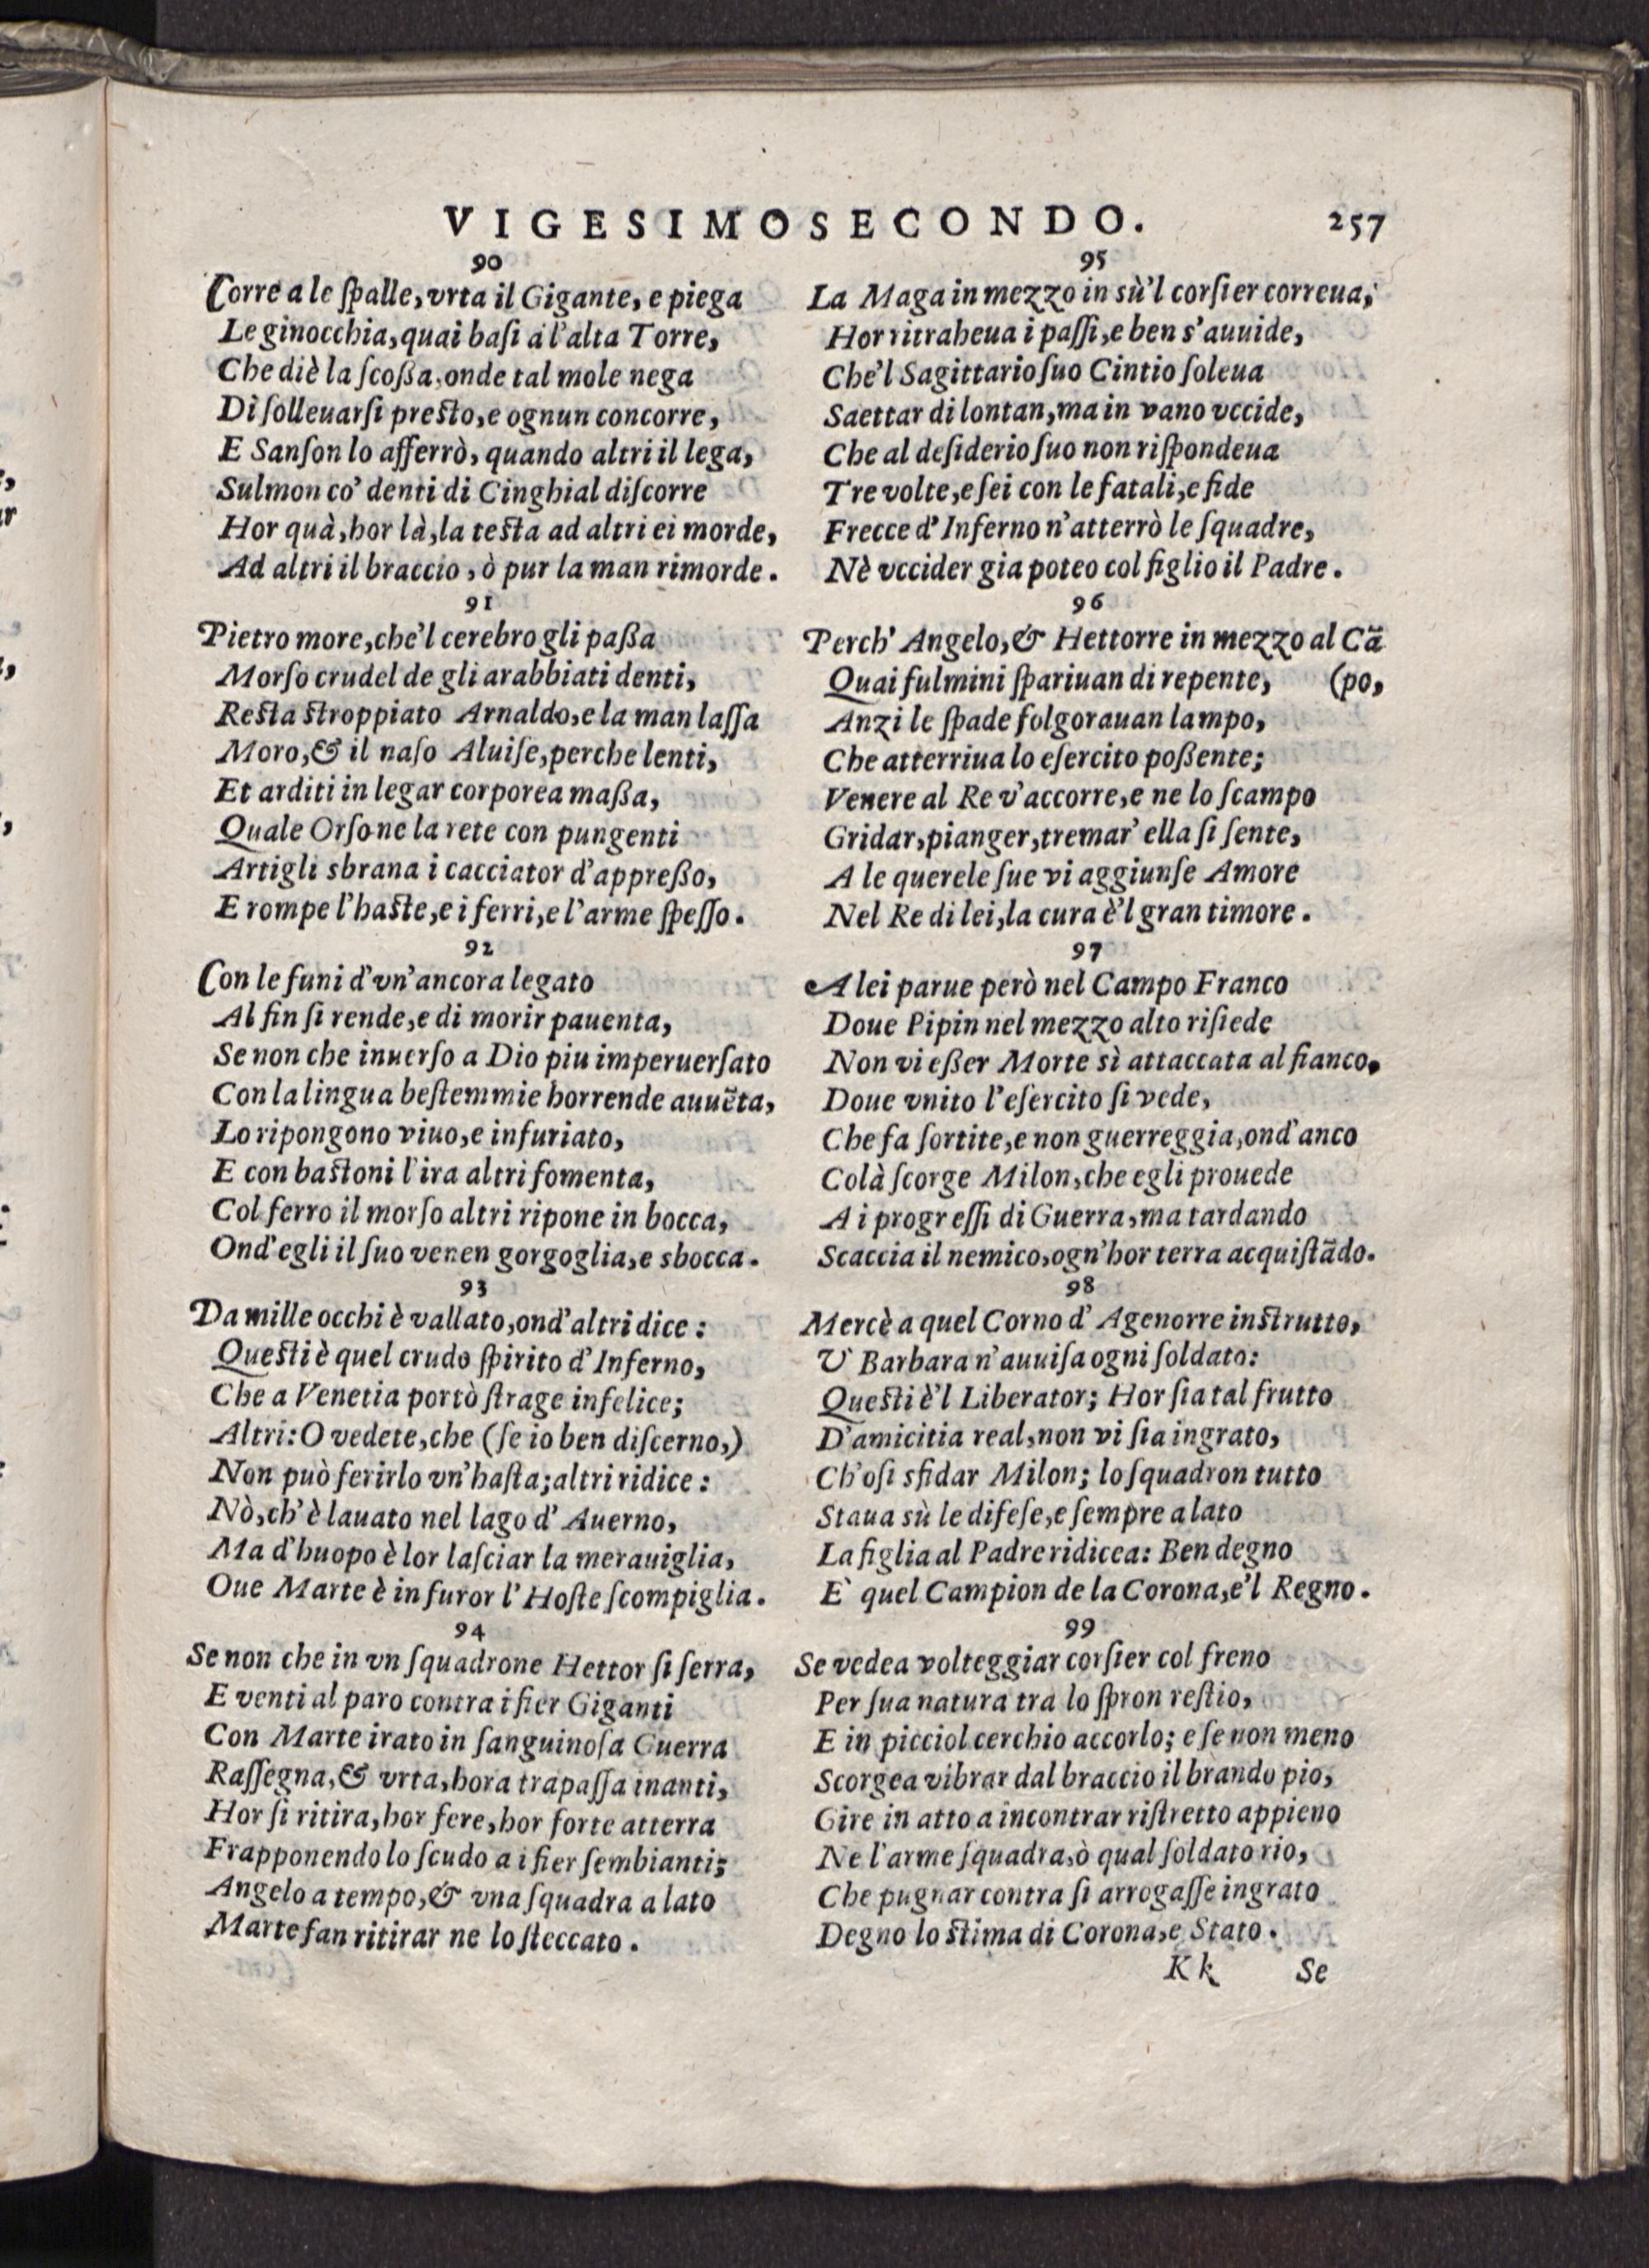 VIGESIMOSECONDO. 257
90
Corre a le ſpalle, vrta il Gigante, e piega
Le ginocchia, quai baſi à l'alta Torre,
Che diè la ſcoßa, onde tal mole nega
Di ſolleuarſi presto, e ognun concorre,
E Sanſon lo afferrò, quando altri il lega,
Sulmon co' denti di Cinghial diſcorre
Hor quà, hor là, la testa ad altri ei morde,
Ad altri il braccio, ò pur la man rimorde.
91
Pietro more, che'l cerebro gli paßa
Morſo crudel de gli arabbiati denti,
Resta stroppiato Arnaldo, e la man laſſa
Moro, & il naſo Aluiſe, perche lenti,
Et arditi in legar corporea maßa,
Quale Orſo ne la rete con pungenti
Artigli sbrana i cacciator d'appreßo,
E rompe l'haste, e i ferri, e l'arme ſpeſſo.
92
Con le funi d'vn'ancora legato
Al fin ſi rende, e di morir pauenta,
Se non che inuerſo a Dio piu imperuerſato
Con la lingua beſtemmie horrende auuẽta,
Lo ripongono viuo, e infuriato,
E con bastoni l'ira altri fomenta,
Col ferro il morſo altri ripone in bocca,
Ond'egli il ſuo venen gorgoglia, e sbocca.
93
Da mille occhi è vallato, ond'altri dice:
Questi è quel crudo ſpirito d'Inferno,
Che a Venetia portò ſtrage infelice;
Altri: O vedete, che (ſe io ben diſcerno,)
Non può ferirlo vn'haſta; altri ridice:
Nò, ch'è lauato nel lago d'Auerno,
Ma d'huopo è lor laſciar la merauiglia,
Oue Marte è in furor l'Hoſte ſcompiglia.
94
Se non che in vn ſquadrone Hettor ſi ſerra,
E venti al paro contra i fier Giganti
Con Marte irato in ſanguinoſa Guerra
Raſſegna, & vrta, hora trapaſſa inanti,
Hor ſi ritira, hor fere, hor forte atterra
Frapponendo lo ſcudo a i fier ſembianti;
Angelo a tempo, & vna ſquadra a lato
Marte fan ritirar ne lo ſteccato.
95
La Maga in mezzo in sù'l corſier correua;
Hor ritraheua i paſſi, e ben s'auuide,
Che'l Sagittario ſuo Cintio ſoleua
Saettar di lontan, ma in vano vccide,
Che al deſiderio ſuo non riſpondeua
Tre volte, e ſei con le fatali, e fide
Frecce d'Inferno n'atterrò le ſquadre,
Nè vccider gia poteo col figlio il Padre.
96
Perch' Angelo, & Hettorre in mezzo al Cã
Quai fulmini ſpariuan di repente, (po,
Anzi le ſpade folgorauan lampo,
Che atterriua lo eſercito poßente;
Venere al Re v'accorre, e ne lo ſcampo
Gridar, pianger, tremar' ella ſi ſente,
A le querele ſue vi aggiunſe Amore
Nel Re di lei, la cura è'l gran timore.
97
A lei parue però nel Campo Franco
Doue Pipin nel mezzo alto riſiede
Non vi eßer Morte sì attaccata al fianco,
Doue vnito l'eſercito ſi vede,
Che fa ſortite, e non guerreggia, ond'anco
Colà ſcorge Milon, che egli prouede
A i progreſſi di Guerra, ma tardando
Scaccia il nemico, ogn'hor terra acquiſtãdo.
98
Mercè a quel Corno d'Agenorre instrutto,
V' Barbara n'auuiſa ogni ſoldato:
Questi è'l Liberator; Hor ſia tal frutto
D'amicitia real, non vi ſia ingrato,
Ch'oſi sfidar Milon; lo ſquadron tutto
Staua sù le difeſe, e ſempre a lato
La figlia al Padre ridicea: Ben degno
È quel Campion de la Corona, e'l Regno.
99
Se vedea volteggiar corſier col freno
Per ſua natura tra lo ſpron reſtio,
E in picciol cerchio accorlo; e ſe non meno
Scorgea vibrar dal braccio il brando pio,
Gire in atto a incontrar riſtretto appieno
Ne l'arme ſquadra, ò qual ſoldato rio,
Che pugnar contra ſi arrogaſſe ingrato
Degno lo stima di Corona, e Stato.
Kk Se